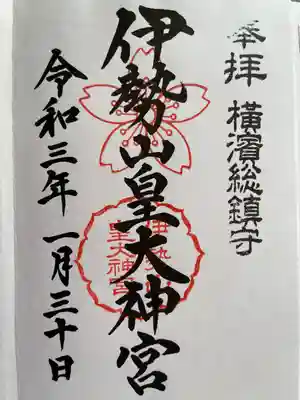 奉拝 横濱総鎮守
伊勢山皇大神宮
伊勢山
皇大神宮
令和三年一月三十日